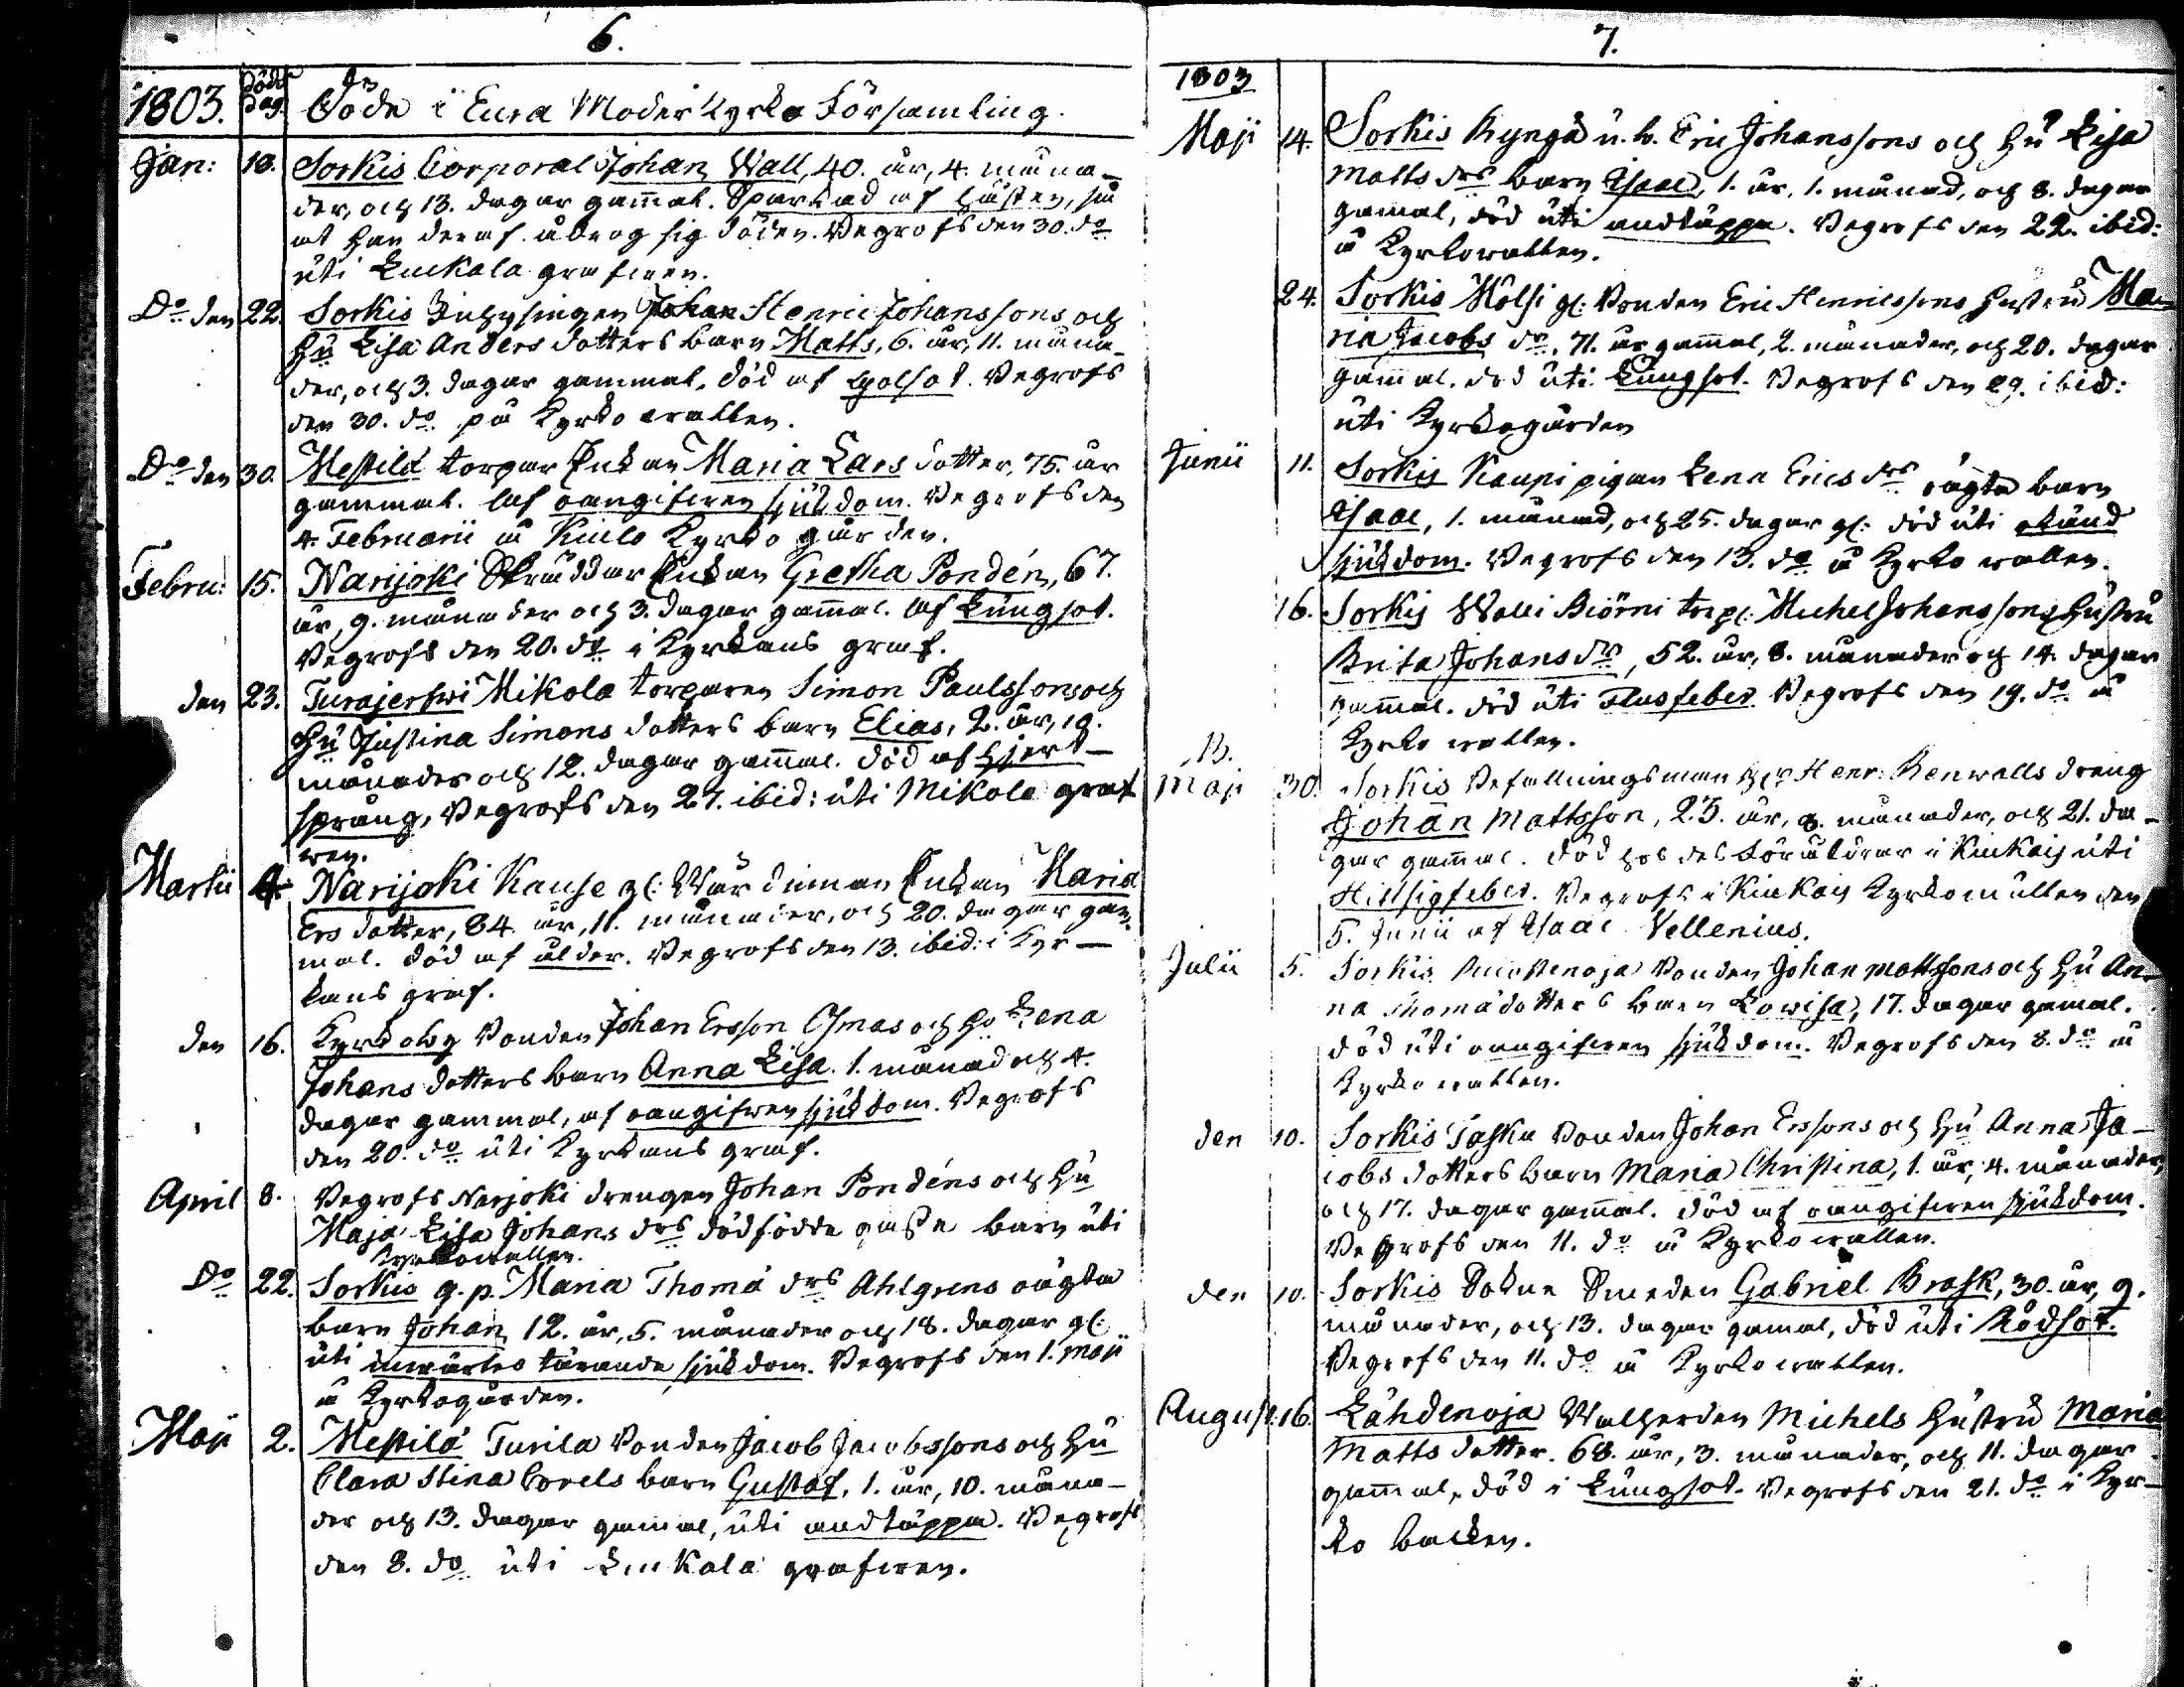 6.
1803. Döds Dag. Döde i Eura Moder Kyrko Församling.
Jan: 18. Sorkis Corporal Johan Wall, 40. år, 4. måna-
der, och 13. dagar gam̄al. Sparkad af hästen, så
at han deraf ådrog sig döden. Begrofs den 30. do
uti Luckala grafwen.
Do den 22. Sorkis Inhysingen Johan Henric Johanssons och
hu Lisa Anders dotters barn Matts, 6. år, 11. måna-
der, och 3. dagar gammal. död af . Begrofs
den 30. do på Kyrkowallen.
Do den 30. Mestilä torpar Enkan Maria Lars dotter, 75. år
gammal. af oangifwen sjukdom. Begrofs den
4. Februarii å Kiulo Kyrko gården.
Febru: 15. Narijoki Skräddar Enkan Gretha Pondén, 67.
år, 9. månader och 3. dagar gam̄al. af Lungsot.
Begrofs den 20. do i Kyrkans graf.
den 23. Turajerfwi Mikola torparen Simon Paulssons och
Hu Justina Simons dotters barn Elias, 2. år, 10.
månader och 12. dagar gam̄al. död af hjert-
språng, Begrofs den 27. ibid: uti Mikola graf
wen.
Martii 4. Narijoki Kause gl: Enkan Maria
Ers dotter, 84. år, 11. månader, och 20. dagar gam-
mal. död af ålder. Begrofs den 13. ibid: i Kyr-
kans graf.
den 16. Kyrkoby Bonden Johan Ersson Osmas och Ho Lena
Johans dotters barn Anna Lisa. 1. månad och 4.
dagar gammal, af oangifwen sjukdom. Begrofs
den 20. do uti Kyrkans graf.
April 8. Begrofs Narjoki drengen Johan Pondéns och Hu
Maja Lisa Johans drs dödfödde barn uti
Kyrkowallen.
Do 22. Sorkis q. p. Maria Thomä drs Ahlgrens oägta
barn Johan, 12. år, 5. månader och 18. dagar gl:
uti inwärtes tärande sjukdom. Begrofs den 1. Maji
å Kyrkogården.
Maji 2. Mestilä Turila Bonden Jacob Jacobssons och Hu
Clara Stina Corels barn Gustaf, 1. år, 10. måna-
der och 13. dagar gamal, uti andtäppa. Begrofs
den 8. do uti Luckala grafwen.
7.
1803
Maji 14. Sorkis Kyngä u. b. Eric Johanssons och Hu Lisa
Matts drs barn Isaac, 1. år, 1. månad, och 8. dagar
gamal, död uti andtäppa. Begrofs den 22. ibid:
å Kyrkowallen.
24. Sorkis Hölsi gl: Bonden Eric Henricssons hustru Ma-
ria Jacobs dr. 71. år gammal, 2. månader, och 20. dagar
gam̄al. död uti Lungsot. Begrofs den 29. ibid:
uti Kyrkogården
Junii 11. Sorkis Kaupi pigan Lena Erics drs oägta barn
Isaac, 1. månad, och 25. dagar gl: död uti okänd
sjukdom. Begrofs den 13. do å Kyrko wallen.
16. Sorkis Walli Biörni torp: Michel Johanssons Hustru
Brita Johans dr, 52. år, 8. månader och 14. dagar
gam̄al. död uti Flusfeber. Begrofs den 19. do å
Kyrko wallen.
NB.
Maji 30. Sorkis Befallningsman Hr Henr: Renwalls dreng
Johan Mattsson, 25. år, 8. månader, och 21. da-
gar gam̄al. död hos des Föräldrar i Kiukais uti
Hittsigfeber. Begrofs i Kiukais Kyrkomullen den
5. Junii af Isaac Vellenius.
Julii 5. Sorkis Bonden Johan Mattssons och Hu An-
na Thomä dotters barn Lowisa, 17. dagar gamal.
död uti oangifwen sjukdom. Begrofs den 8. do å
Kyrkowallen.
den 10. Sorkis Taska Bonden Johan Erssons och Hu Anna Ja-
cobs dotters barn Maria Christina, 1. år, 4. månader,
och 17. dagar gam̄al. död af oangifwen sjukdom.
Begrofs den 11. do å Kyrkowallen.
den 10. Sorkis Sokne Smeden Gabriel Brask, 30. år, 9.
månader, och 13. dagar gamal, död uti Rödsot.
Begrofs den 11. do å Kyrkowallen.
August: 16. Lähdenoja Wallherden Michels Hustru Maria
Matts dotter. 68. år, 3. månader, och 11. dagar
gam̄al, död i Lungsot. Begrofs den 21. do i Kyr-
ko backen.